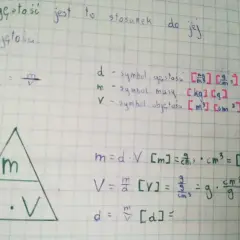 jest to stosunek do jej
= m/V
d - symbol gęstości [kg/m³] [g/cm³]
m - symbol masy [kg] [g]
V - symbol objętości [m³] [cm³]
m
· V
m = d · V [m] = g/cm³ · cm³ = [
V = m/d [V] = g/(g/cm³) = g · cm³/g
d = m/V [d] =